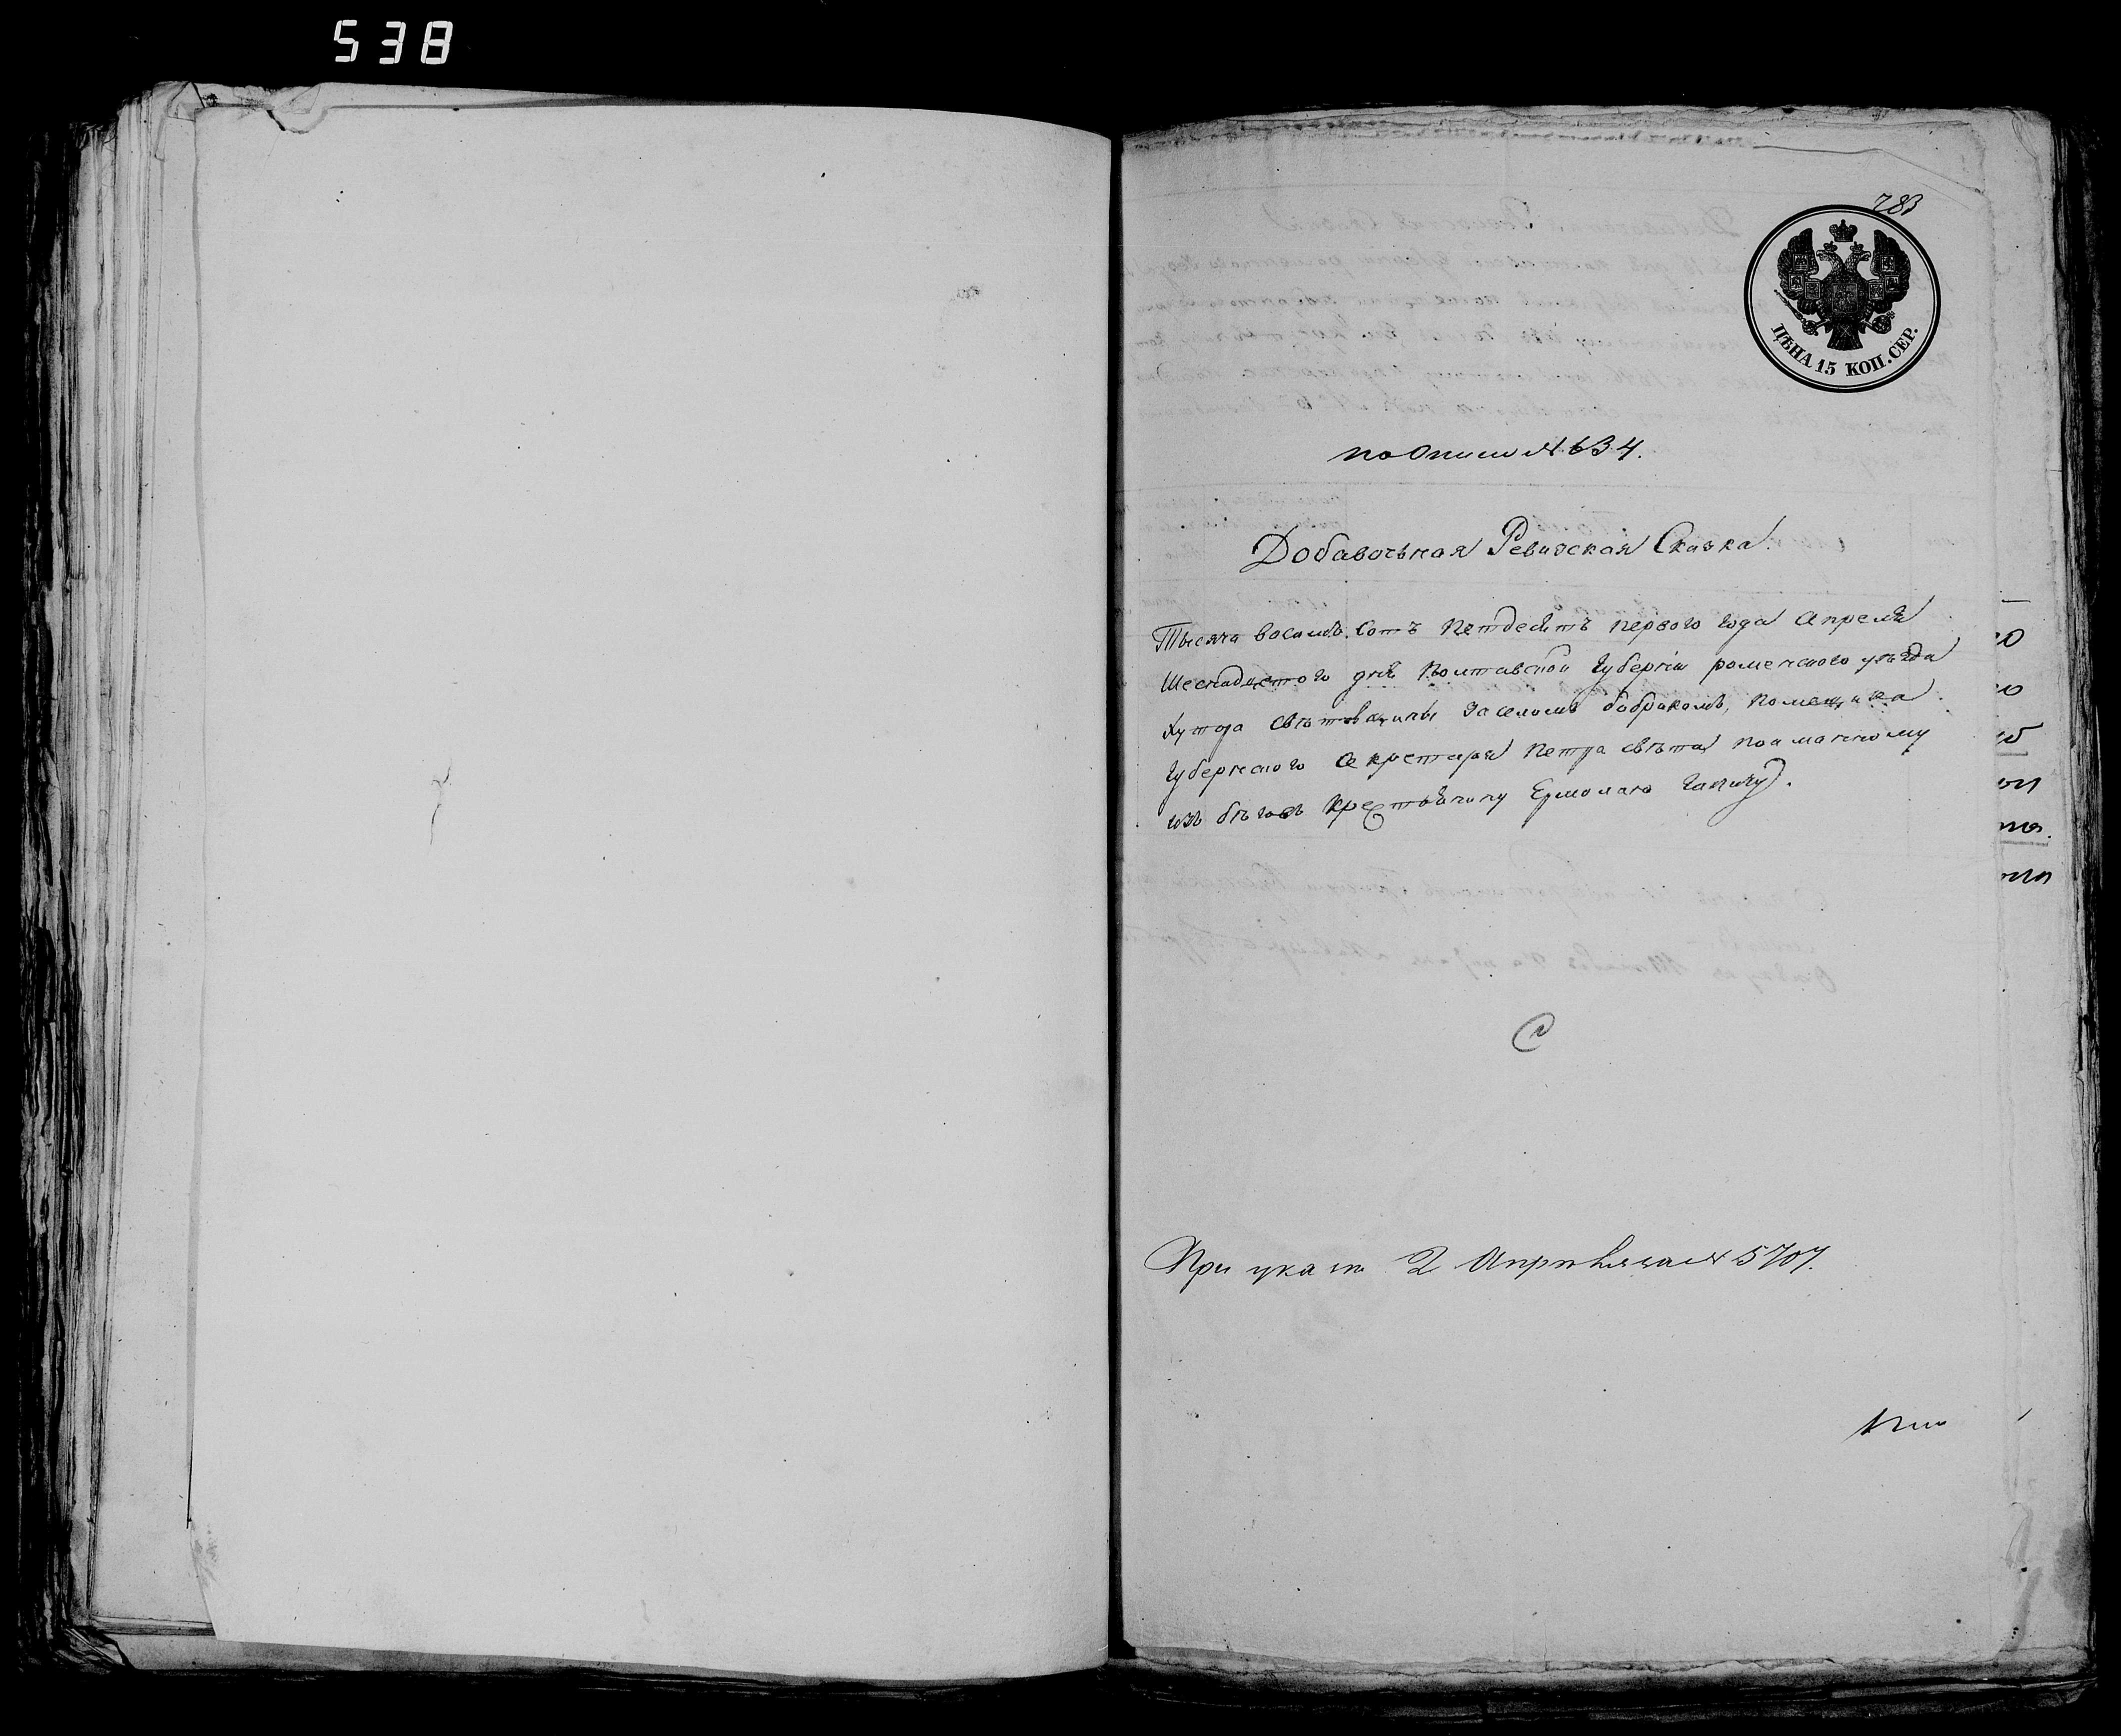 538
783
ЦѢНА 15 КОП. СЕР.
по описи № 634.
Добавочьная Ревизская Сказка.
Тысяча восамь сотъ петдесятъ первого года Апреля
Шеснадцетого дня Полтавской Губерніи роменского уѣзда
Хутора Свѣтовщины Заселомъ бобрикомъ, помещика
Губернского Секретаря Петра Свѣта, поиманному
изъ бѣговъ Крестьянину Ермолаю
При указѣ 2 Апрѣля № 5707.